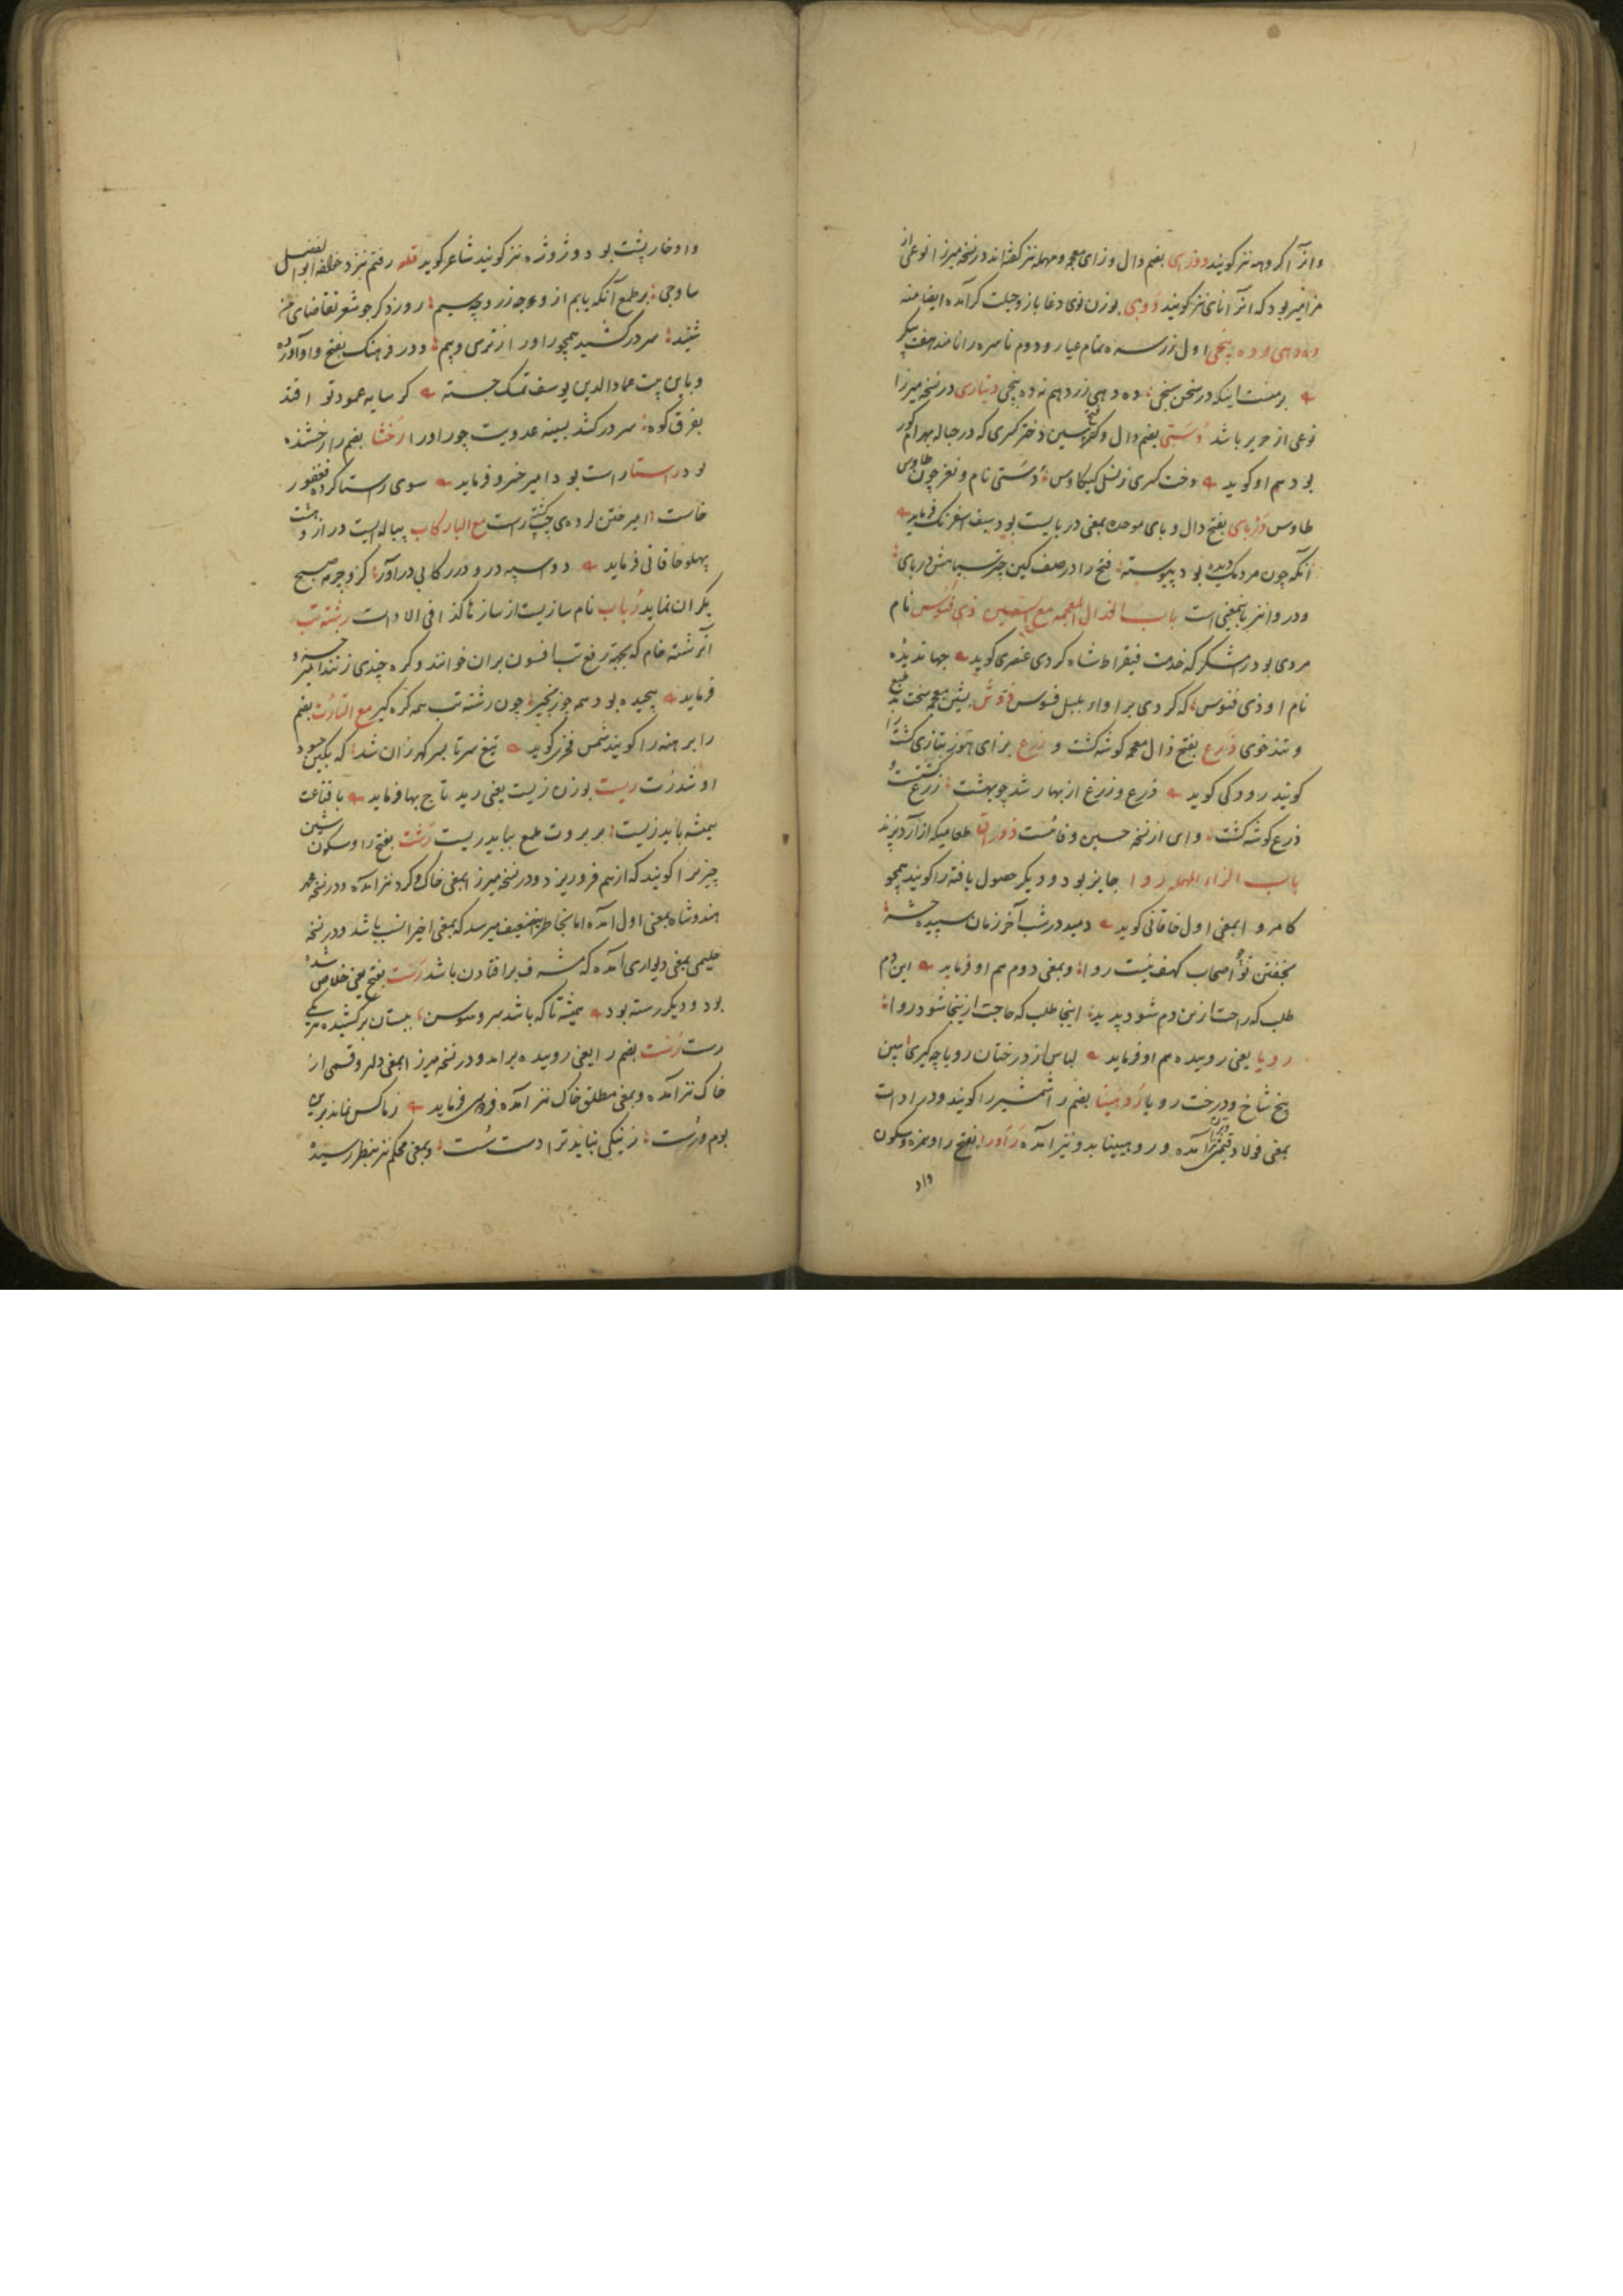 وانرا کروهه نیز کویند دوزهی بضم دال و زای معجمه و مهمله نیز کفته‌اند در نسخه میرزا نوعی از
مزامیر بود که انرا نای نیز کویند دوبی بوزن نوی دغا باز و حیلت کر آمده ایضا منه
ده دهی و ده پنجی اول زر سره تمام عیار و دوم ناسره را نامند هفت پیکر
برمنست اینکه در سخن سنجی ده دهی زر دهم نه ده پنجی دیناری در نسخه میرزا
نوعی از حریر باشد دستی بضم دال و سین دختر کسری که در حباله بهرام کور
بود هم او کوید دخت کسری ز نسل کیکاوس دستی نام و نغز چون طاوس
طاوس دربای بفتح دال و بای موحده بمعنی دربایست بود سیف اسفرنک فرماید
آنکه چون مردمک دیده بود پیوسته فتح را در صف کین چتر سیاهش دربای
و دروا نیز باینمعنی است باب الذال المعجمه مع السین ذی فنوس نام
مردی بود در لشکر که خدمت فیقراط شاه کردی عنصری کوید جهاندیده
نام او ذی فنوس که کردی بر اواء بلبل فسوس بشین معجمه سخت بد طبع
و تند خوی ذرع بفتح ذال معجمه کوشه کشت و زرع بزای هوز بتازی کشت را
کویند رودکی کوید ذرع و زرع از بهار شد چو بهشت زرع کشتست و
ذرع کوشه کشت وای از نسخه حسین وفائست طعامیکه از آرد پزند
باب الراء المهمله روا جایز بود و دیکر حصول یافته را کویند همچو
کامروا بمعنی اول خاقانی کوید دمید در شب آخر زمان سپیده حشر
بخفتن تو چو اصحاب کهف نیست روا و بمعنی دوم هم او فرماید این دم
طلب که راحت ازین دم شود پدید اینجا طلب که حاجت ازینجا شود روا
رویا یعنی روینده هم او فرماید لباس از درختان رویا چه کیری ببین
بیخ شاخ و درخت رویا روهینا بضم را شمشیر را کویند و در ادات
بمعنی فولاد قیمتی نیز آمده و روهینا بدو نیز آمده راورا بفتح را و همزه و سکون
واو
واو خارپشت بود و ژوژه نیز کویند شاعر کوید قطعه رفتم بنزد خلفه ابوالفضل
ساوجی بر طمع آنکه یابم از وجه زر و سیم روزد کر جو شعر تقاضای من
شنید سر درکشید همچو راورا ز ترس و بیم و در فرهنک بفتح واو آورده
و باین بیت عماد الدین یوسف تمسک جسته کر سایه عمود تو افتد
بفرق کوه سر درکشد بسینه عدویت چو راورا رخشا بضم را رخشنده
بود راستا راست بود امیر خسرو فرماید سوی راستا کرده فغفور
خاست امیر ختن مع البا رکاب پیاله ایست دراز و هشت
پهلو خاقانی فرماید دو اسپه در و در رکابی درآور کزو چرمه صبح
یکران نماید رباب نام سازیست از ساز ها کذا فی الادات رشته تب
آنرشته خام که بجهة رفع تب افسون بران خوانند و کره چندی زنند امیر خسرو
فرماید پیچیده بود همه چو زنجیر چون رشته تب همه کره کیر مع التا رت بضم
را برهنه را کویند شمس فخری کوید تیغ سر تا بسر کهر زان شد که بکین حسود
او شد رت ریت بوزن زیت یعنی رید تاج بها فرماید با قناعت
همیشه باید زیست بر بروت طمع بباید ریت رشت بفتح را و سکون شین
چیزیرا کویند که از هم فرو ریزد و در نسخه میرزا بمعنی خاک و کرد نیز آمده و در نسخه محمد
هندوشاه بمعنی اول آمده اما بخاطر این ضعیف میرسد که بمعنی اخیر انسب باشد و در نسخه
حلیمی بمعنی دیواری آمده که مشرف بر افتادن باشد رست بفتح یعنی خلاص شده
بود و دیکر رسته بود همیشه تا که باشد سرو سوسن ببستان برکشیده هر یکی
رست رست بضم را یعنی روییده برآمد و در نسخه میرزا بمعنی دلیر و قسمی از
خاک نیز آمده و بمعنی مطلق خاک نیز آمده فردوسی فرماید زماکس نماند برین
بوم و رست ز نیکی بباید ترا دست شست و بمعنی محکم نیز بنظر رسیده